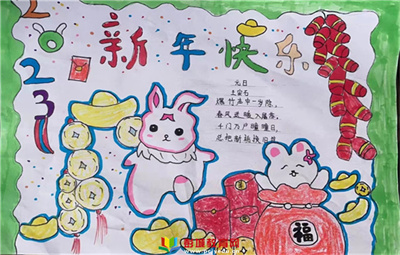 2023
新年快乐
元日
王安石
爆竹声中一岁除,
春风送暖入屠苏。
千门万户曈曈日,
总把新桃换旧符。
福